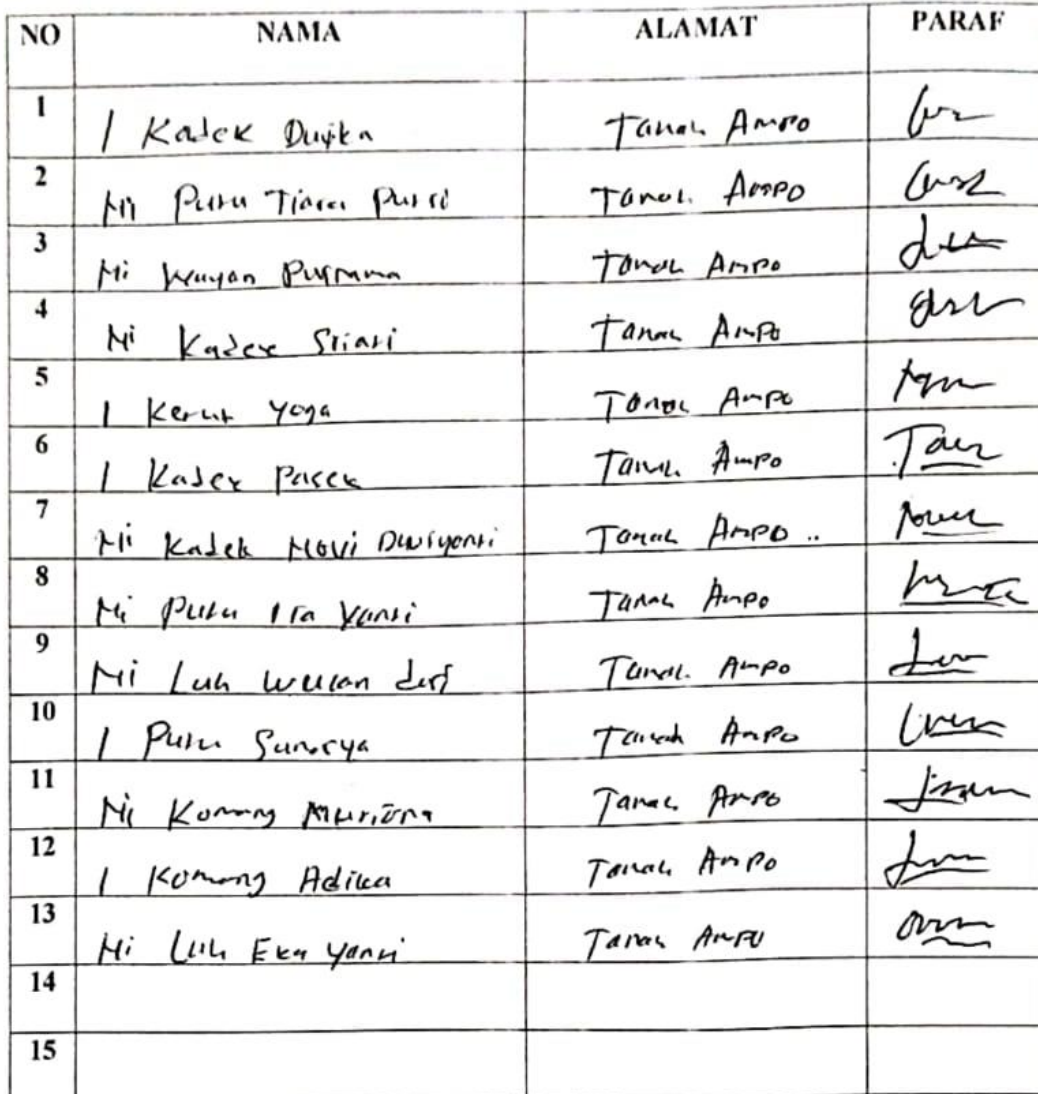 NO NAMA ALAMAT PARAF
1 I Kadek Duika Tanah Ampo
2 Ni Putu Tiara Putri Tanah Ampo
3 Ni Wayan Purnama Tanah Ampo
4 Ni Kadek Sriasi Tanah Ampo
5 I Ketut Yoga Tanah Ampo
6 I Kadek Pasek Tanah Ampo
7 Ni Kadek Novi Dwiyanti Tanah Ampo ..
8 Ni Putu Ira Yanti Tanah Ampo
9 Ni Luh Wulan Tanah Ampo
10 I Putu Sunarya Tanah Ampo
11 Ni Komang Tanah Ampo
12 I Komang Adika Tanah Ampo
13 Ni Luh Eka Yanti Tanah Ampo
14
15